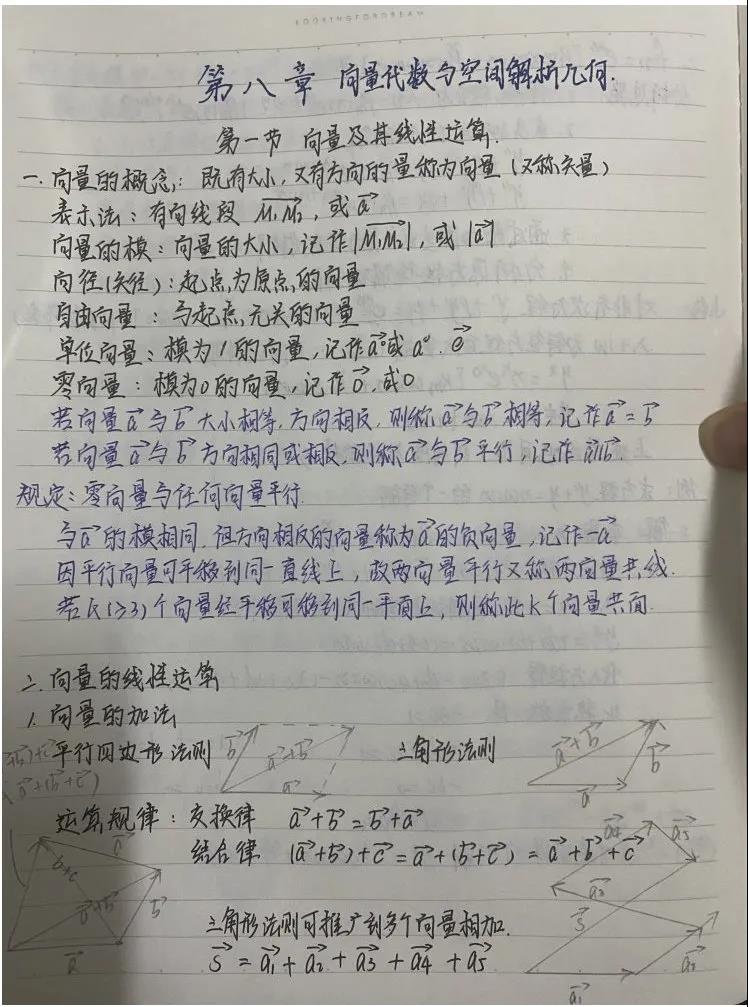 BOOKINGFORDREAM
第八章 向量代数与空间解析几何.
第一节 向量及其线性运算.
一. 向量的概念: 既有大小, 又有方向的量称为向量 (又称矢量)
表示法: 有向线段 M₁M₂→, 或 a→
向量的模: 向量的大小, 记作 |M₁M₂→|, 或 |a→|
向径(矢径): 起点为原点的向量
自由向量: 与起点无关的向量
单位向量: 模为1的向量, 记作 a→° 或 a°. e→
零向量: 模为0的向量, 记作 0→. 或0
若向量 a→ 与 b→ 大小相等, 方向相反, 则称 a→ 与 b→ 相等, 记作 a→ = b→
若向量 a→ 与 b→ 方向相同或相反, 则称 a→ 与 b→ 平行, 记作 a→∥b→.
规定: 零向量与任何向量平行.
与 a→ 的模相同, 但方向相反的向量称为 a→ 的负向量, 记作 -a→
因平行向量可平移到同一直线上, 故两向量平行又称两向量共线.
若k(≥3)个向量经平移可移到同一平面上, 则称此k个向量共面.
二. 向量的线性运算
1. 向量的加法
平行四边形法则 b→ a→+b→ a→ 三角形法则 a→+b→ b→ a→
(a→+b→)+c→
a→+(b→+c→)
运算规律: 交换律 a→+b→=b→+a→
结合律 (a→+b→)+c→=a→+(b→+c→)=a→+b→+c→
a→ b+c a→+b→ b→ a→
a4→ a5→ a3→ s→ a2→ a1→
三角形法则可推广到多个向量相加.
s→ = a1→ + a2→ + a3→ + a4→ + a5→